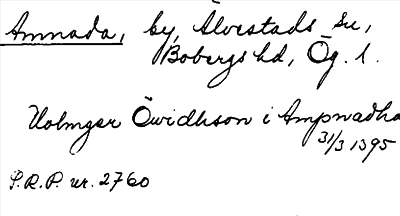 Amnada, by, Älvestads sn,
Bobergs hd, Ög. l.
Holmger Öwidhson i Ampnadha
31/3 1395
S.R.P. nr. 2760